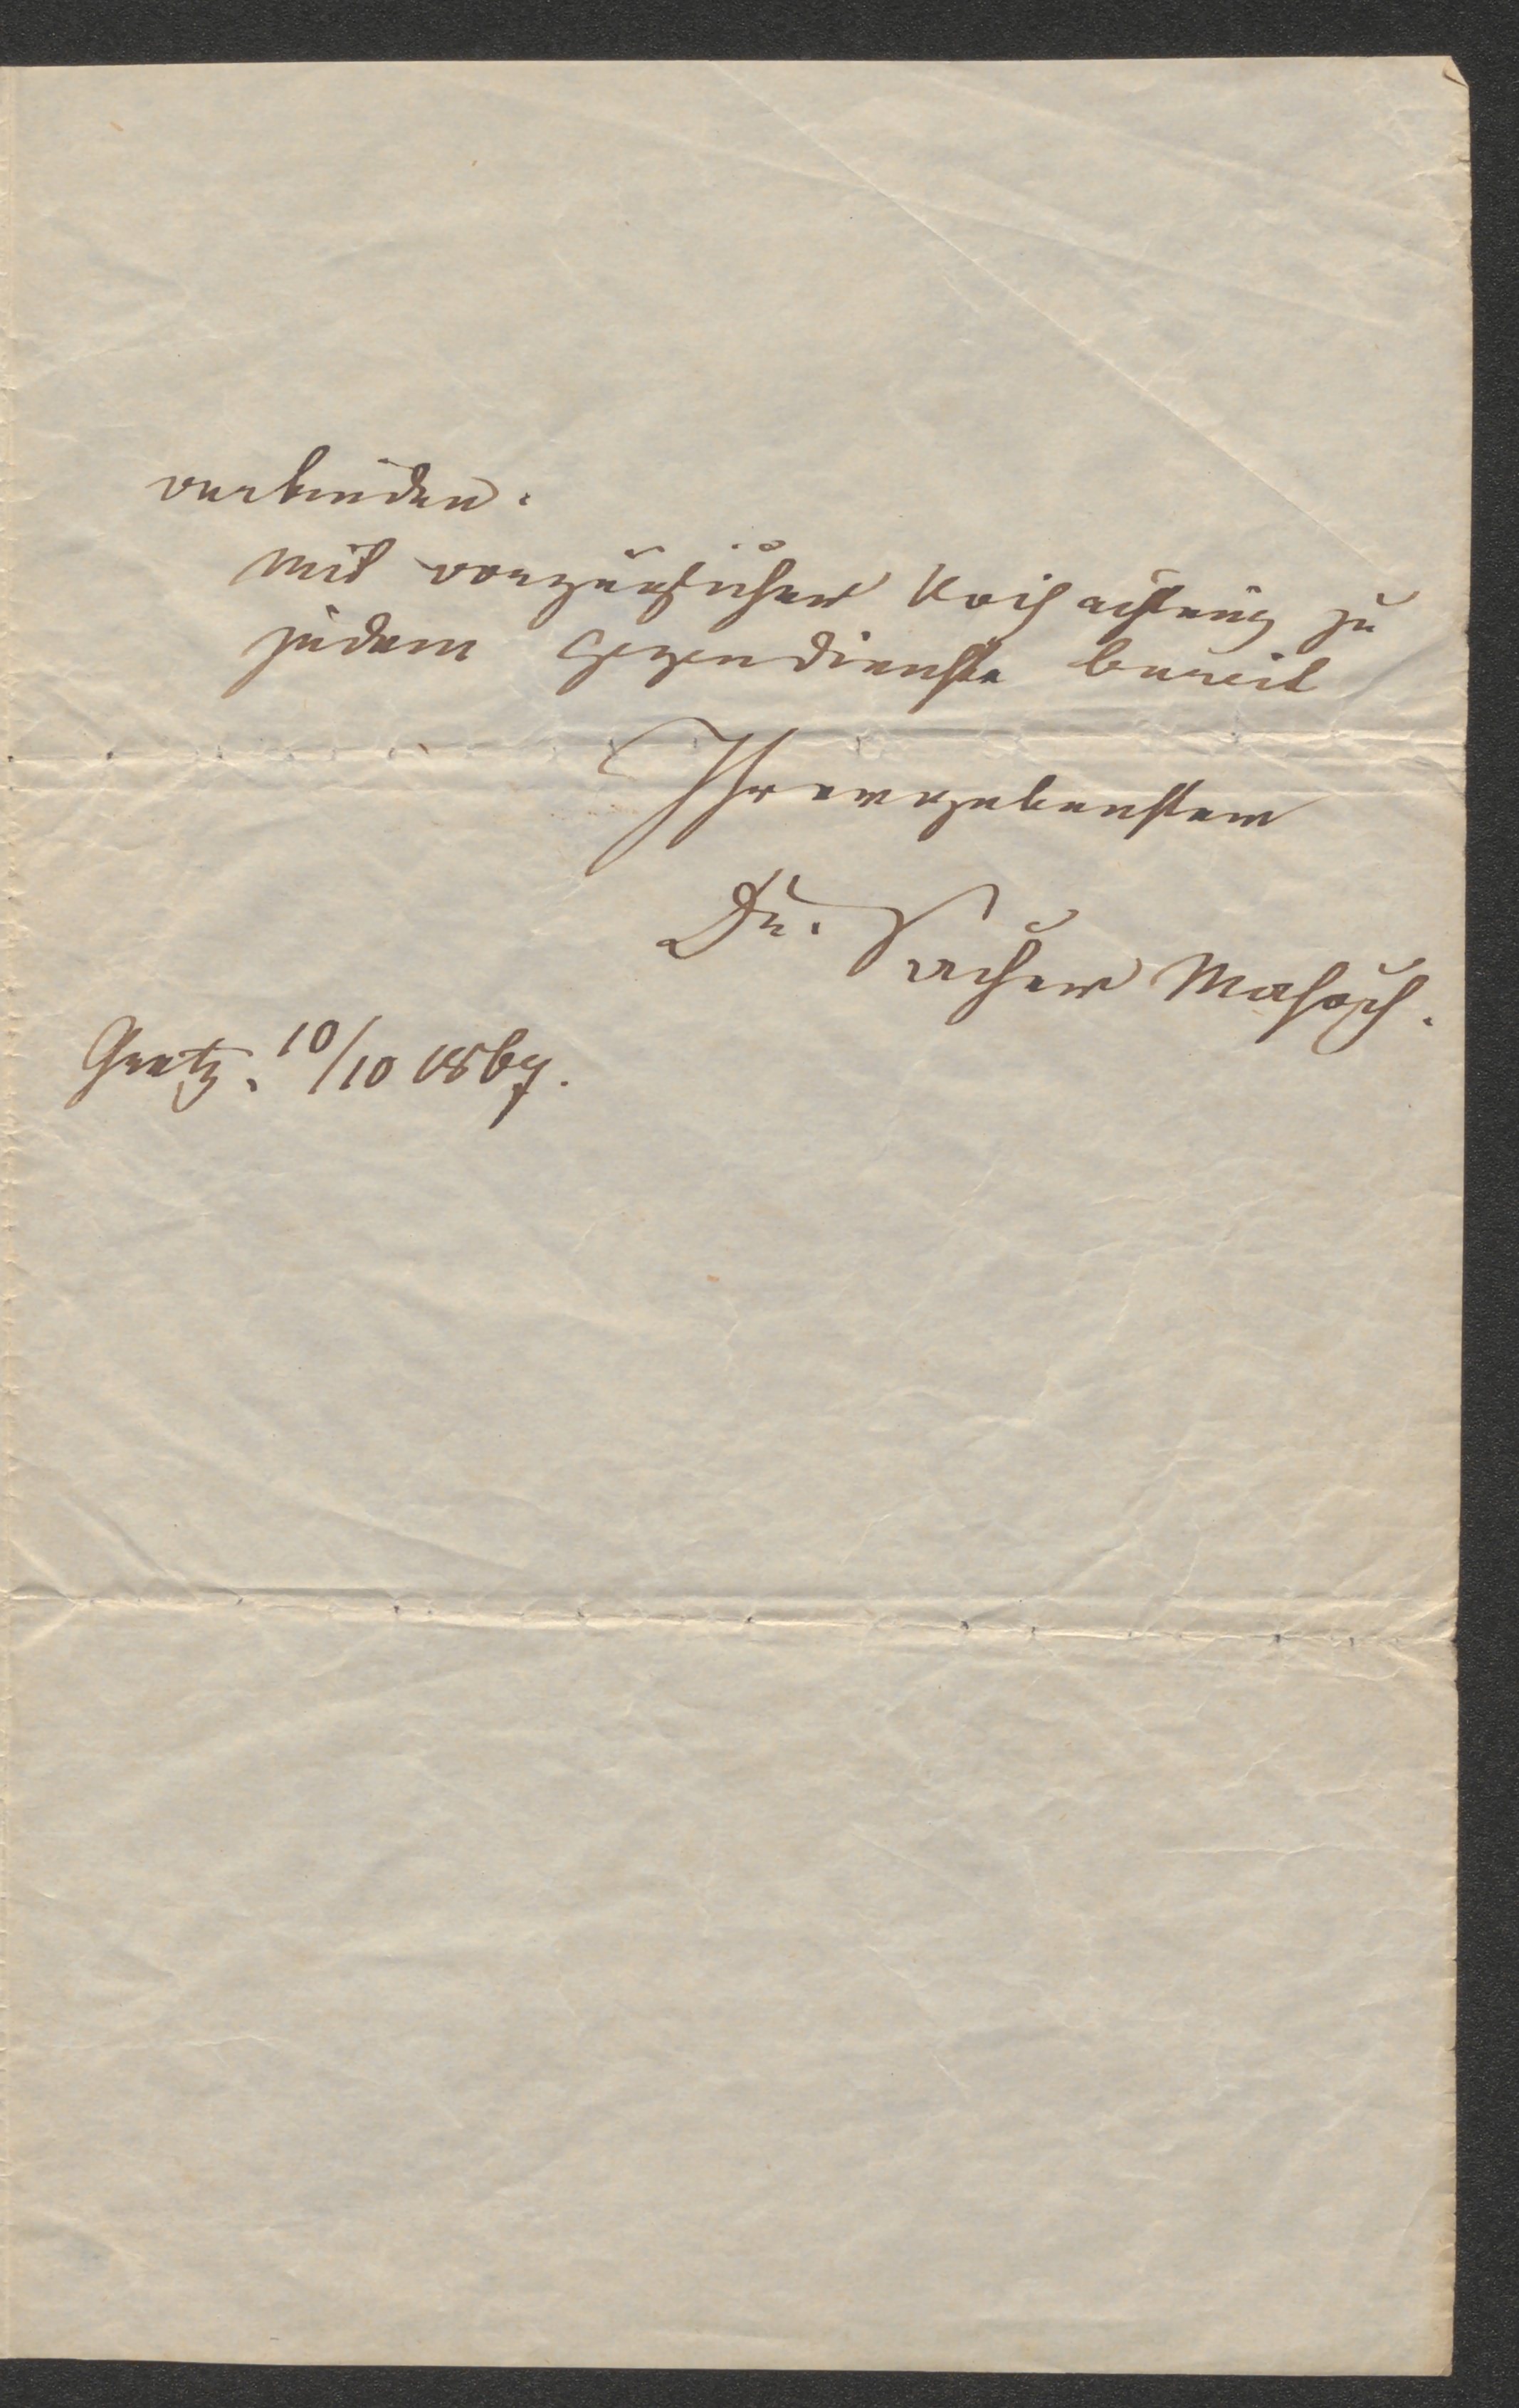 verbinden.
Mit vorzüglicher Hochachtung zu
jedem Gegendienste bereit
Ihr ergebenster
Dr. Sacher Masoch.
Gratz. 10/10 1867.